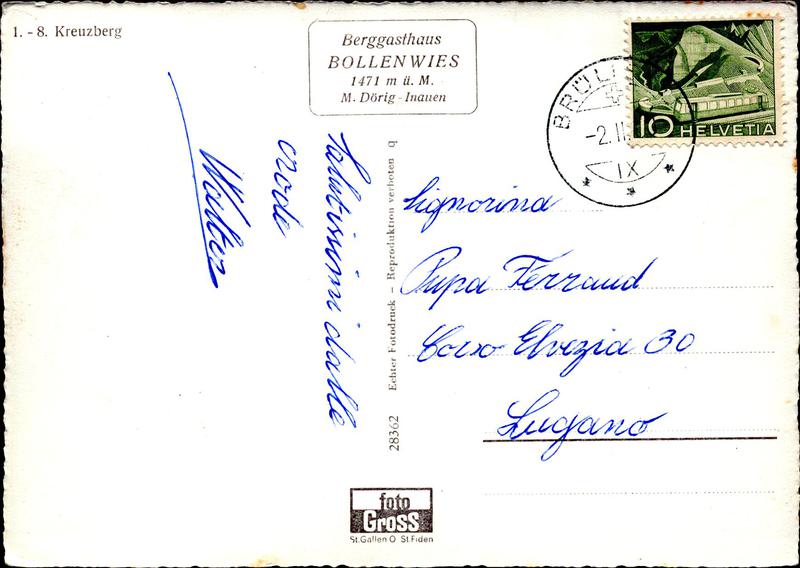 1. - 8. Kreuzberg
Berggasthaus
BOLLENWIES
1471 m ü. M.
M. Dörig - Inauen
-2. II
IX
10 HELVETIA
Salutissimi dalle
crode
Walter
28362 Echter Fotodruck – Reproduktion verboten q
Signorina
Pupa Ferraud
Corso Elvezia 30
Lugano
foto
Gross
St. Gallen O St. Fiden